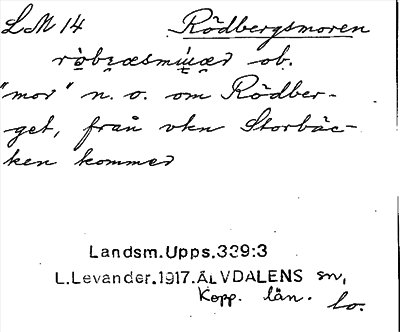 LM 14 Rödbergsmoren
ob.
"mor" n. o. om Rödber-
get, från vkn Storbäc-
ken kommer
Landsm. Upps. 339:3
L. Levander. 1917. ÄLVDALENS sn,
Kopp. län.
lo.